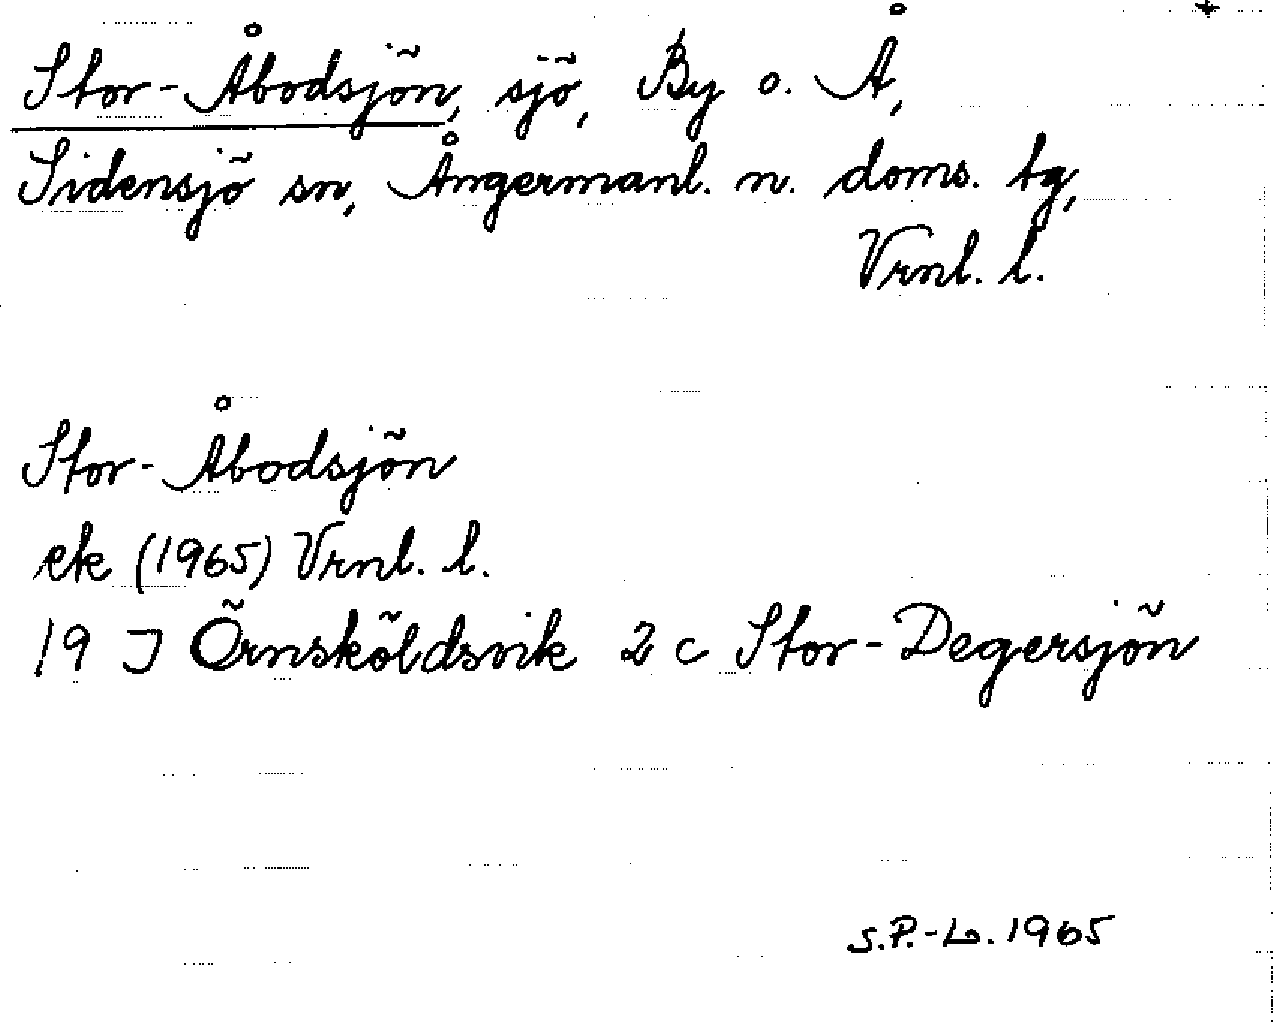 Stor-Åbodsjön, sjö, By o. Å,
Sidensjö sn, Ångermanl. n. doms. tg,
Vrnl. l.
Stor-Åbodsjön
ek (1965) Vrnl. l.
19 J Örnsköldsvik 2 c Stor-Degersjön
S.P.-L. 1965